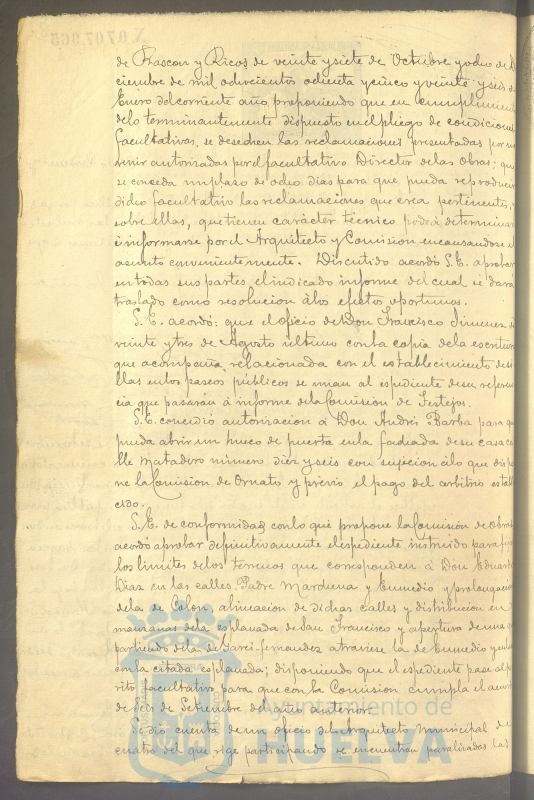 de Rascon y Ricos de veinte y siete de Octubre y ocho de Di
ciembre de mil ochocientos ochenta y cinco y veinte y seis de
Enero del corriente año, proponiendo que en cumplimiento
delo terminantemente dispuesto en el pliego de condiciones
facultativas, se desechen las reclamaciones presentadas por no
venir autorizadas por el facultativo Director de las Obras; que
se conceda un plazo de ocho dias para que pueda reproducir
dicho facultativo las reclamaciones que crea pertinentes, y
sobre ellas, que tienen carácter técnico podrá determinar
é informarse por el Arquitecto y Comision encausandose el
asunto convenientemente. Discutido acordó S.E. aprobar
en todas sus partes el indicado informe del cual se dará
traslado como resolucion á los efectos oportunos.
S. E. acordó: que el oficio de Don Francisco Jimenez de
veinte y tres de Agosto último con la copia de la escritura
que acompaña, relacionada con el establecimiento de si
llas en los paseos públicos se unan al espediente de su referen
cia que pasarán á informe de la Comision de Festejos.
S.E. concedió autorizacion á Don Andrés Barba para que
pueda abrir un hueco de puerta en la fachada de su casa ca
lle Matadero número diez y seis con sujecion á lo que dispo
ne la Comision de Ornato y previo el pago del arbitrio estable
cido.
S. E. de conformidad con lo que propone la Comision de Obras
acordó aprobar definitivamente el espediente instruido para
los limites de los terrenos que corresponden á Don Eduardo
Diaz en las calles Padre Marchena y Enmedio y prolongacion
de la de Colon, alineacion de dichas calles y distribucion en
manzanas de la esplanada de San Francisco y apertura de una q
partiendo de la de Garci-fernandez atraviese la de Enmedio y
en la citada esplanada; disponiendo que el espediente pase al pe
rito facultativo para que con la Comision cumpla el acuerdo
de seis de Setiembre del año anterior.
Se dió cuenta de un oficio del Arquitecto Municipal de
cuatro del que rige participando se encuentran paralizadas las
Ayuntamiento de
HUELVA